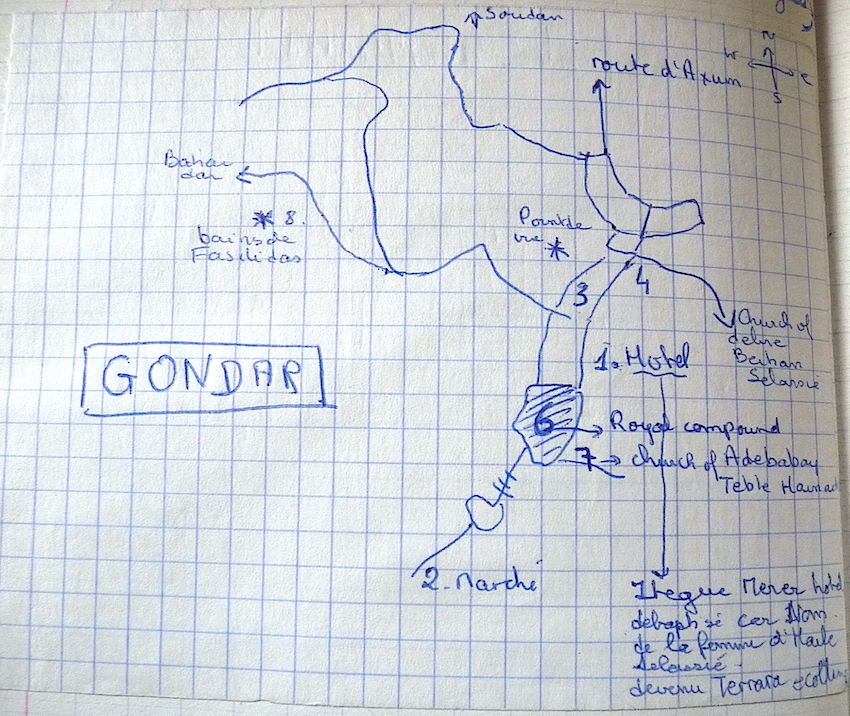 Soudan
route d'Axum
N
W
E
S
Bahar
dar
* 8.
bains de
Fasilidas
Point de
vue *
3
4
Church of
debre
Berhan
Selassié
GONDAR
1. Hotel
6
Royal compound
7 → church of Adebabay
Tekle Haiman
2. Marché
Itegue Menen hotel
débaptisé car Nom
de la femme d'Haile
Selassié
devenu Terrara